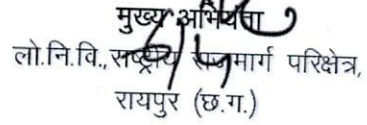 मुख्य अभियंता
लो.नि.वि., राष्ट्रीय राजमार्ग परिक्षेत्र,
रायपुर (छ.ग.)